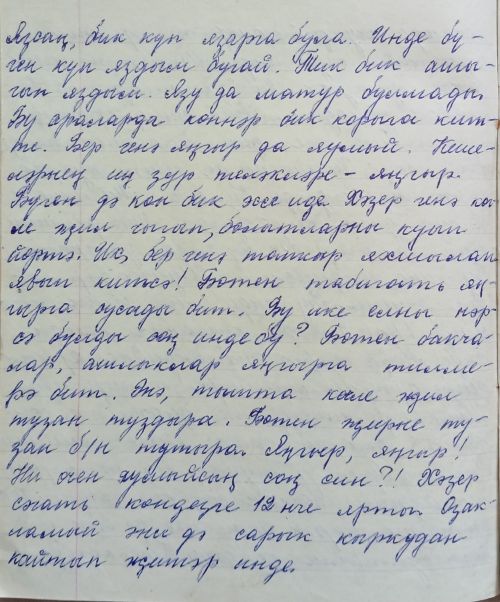 Язсаң, бик күп язарга була. Инде бү-
ген күп яздым бугай. Тик бик ашы-
гып яздым. Язу да матур булмады.
Бу араларда көннәр бик корыга кит-
те. Бер генә яңгыр да яумый. Кеше-
ләрнең иң зур теләкләре - яңгыр.
Бүген дә көн бик эссе иде. Хәзер генә кө-
ле җил чыгып, болытларны куып
йөртә. Их, бер генә тапкыр яхшылап
явып китсә! Бөтен табигать яң-
гырга сусады бит. Бу ике елны нәр-
сә булды соң инде бу? Бөтен бакча-
лар, ашлыклар яңгырга тилме-
рә бит. Әнә, тышта көчле җил
тузан туздыра. Бөтен җирне ту-
зан б/н тутыра. Яңгыр, яңгыр!
Ни өчен яумыйсың соң син?! Хәзер
сәгать көндезге 12 нче ярты. Озак-
ламый әни дә сарык кыркудан
кайтып җитәр инде.